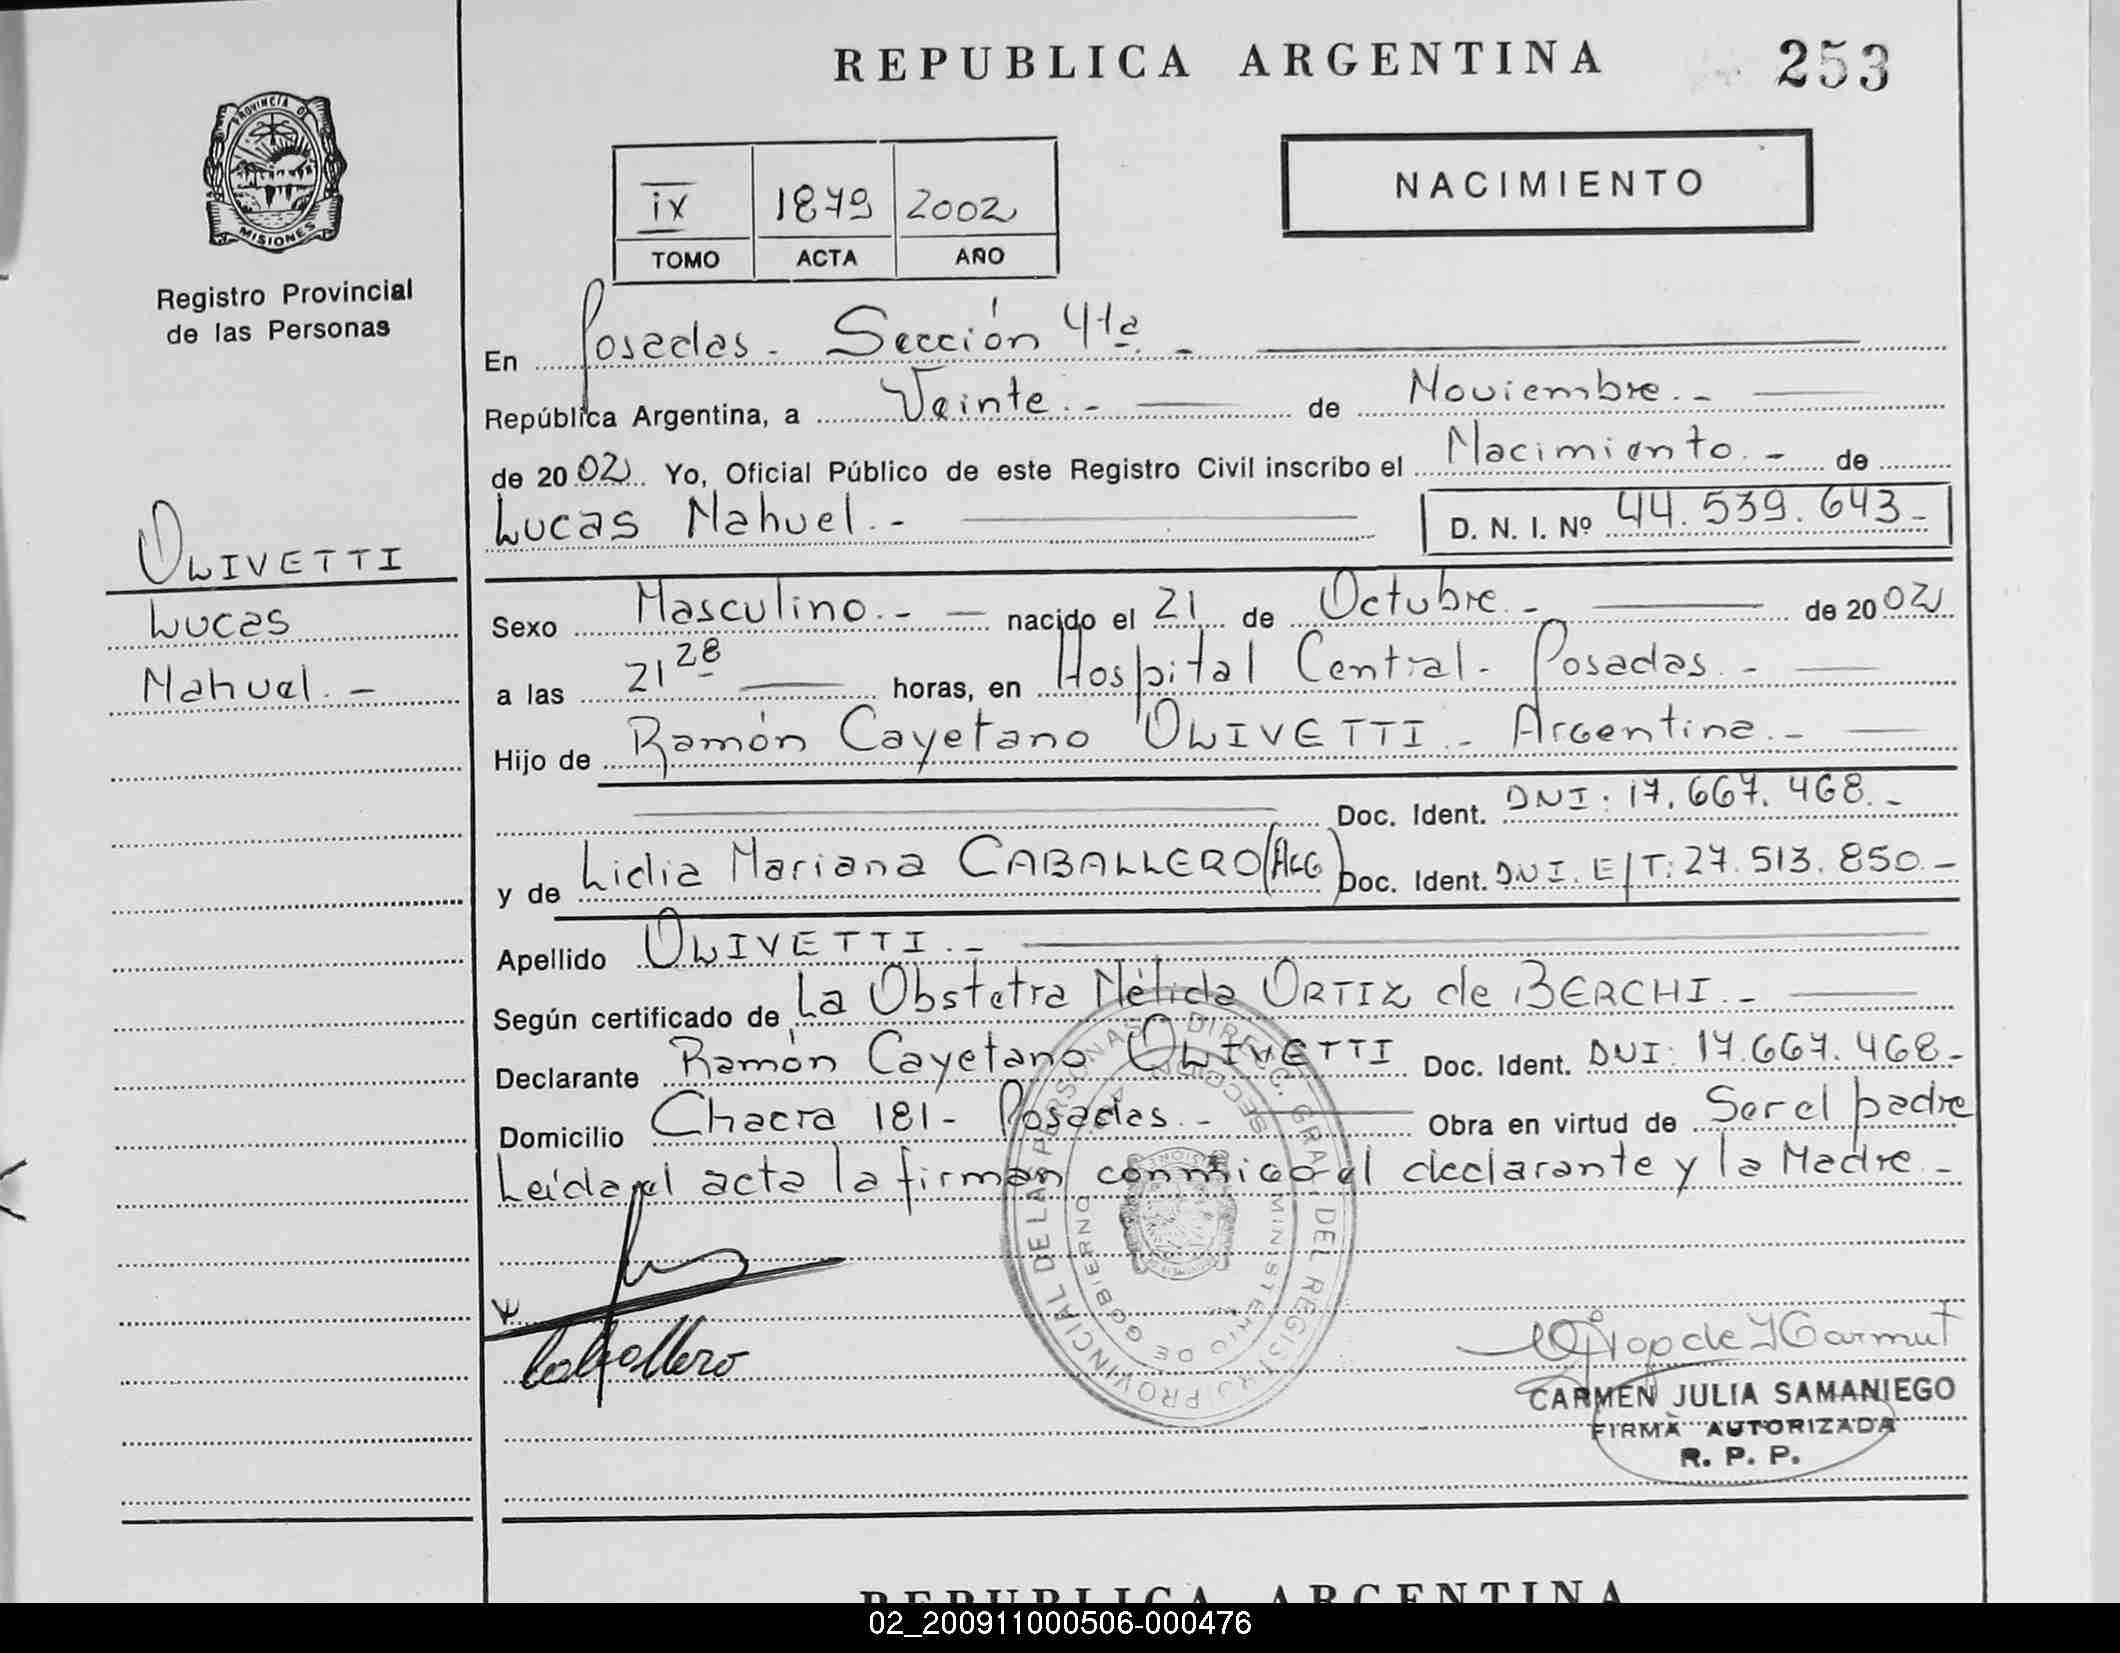 REPUBLICA ARGENTINA
253
PROVINCIA D
MISIONES
Registro Provincial
de las Personas
ix 1879 2002
TOMO ACTA AÑO
NACIMIENTO
En Posadas - Sección 4ta. -
República Argentina, a Veinte. - de Noviembre. -
de 20 02 Yo, Oficial Público de este Registro Civil inscribo el Nacimiento. - de
Lucas Nahuel. - D. N. I. Nº 44.539.643-
OLIVETTI
Lucas
Nahuel. -
Sexo Masculino. - nacido el 21 de Octubre. - de 20 02
a las 21 28 horas, en Hospital Central - Posadas. -
Hijo de Ramón Cayetano OLIVETTI. - Argentina. -
Doc. Ident. DNI: 17.667.468. -
y de Lidia Mariana CABALLERO (ARG) Doc. Ident. DNI. E/T: 27.513.850. -
Apellido OLIVETTI. -
Según certificado de La Obstetra Nélida ORTIZ de BERCHI. -
Declarante Ramón Cayetano OLIVETTI Doc. Ident. DNI: 17.667.468 -
Domicilio Chacra 181 - Posadas. - Obra en virtud de Ser el padre
Leída el acta la firman conmigo el declarante y la Madre. -
DIRECC. GRAL. DEL REGISTRO PROVINCIAL DE LAS PERSONAS
MINISTERIO DE GOBIERNO
Caballero
CARMEN JULIA SAMANIEGO
FIRMA AUTORIZADA
R. P. P.
REPUBLICA ARGENTINA
02_200911000506-000476